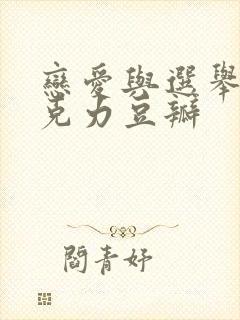 戀愛與選舉
克力豆瓣
閻青妤